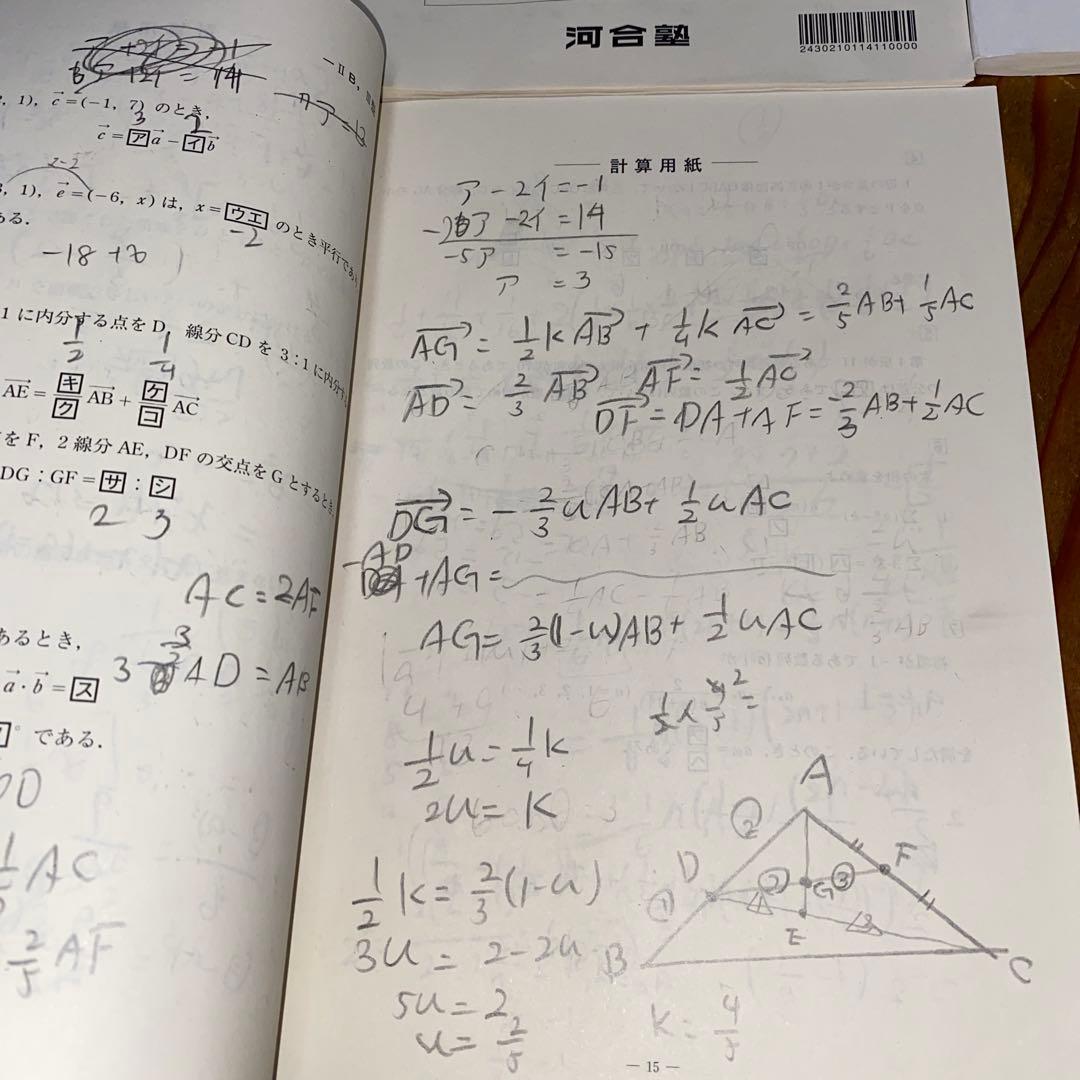 河合塾
2430210114110000
ー ⅡB,
1), c=(-1, 7) のとき,
3 2
c=アa-イb
1), e=(-6, x) は, x=ウエ のとき平行であ
-2
ある.
-18+x
1に内分する点をD, 線分CDを3:1に内分
1/2 1/4
AE=キ/ク AB+ケ/コ AC
をF, 2線分AE, DFの交点をGとするとき,
DG:GF=サ:シ
2 3
AC=2AF
3 AD=AB
あるとき,
a・b=ス
° である.
AC
2/5 AF
計算用紙
ア-2イ=-1
ア-2イ=14
-5ア =-15
ア =3
AG=1/2 k AB+1/4 k AC=2/5 AB+1/5 AC
AD=2/3 AB AF=1/2 AC
DF=DA+AF=-2/3 AB+1/2 AC
DG=-2/3 u AB+1/2 u AC
-AD
+AG=
AG=2/3(1-u)AB+1/2 u AC
1/2 u=1/4 k
2u=k
1/2 k=2/3(1-u)
3u=2-2u
5u=2
u=2/5
k=4/5
A
② F
D ② G ③
① E
B C
- 15 -